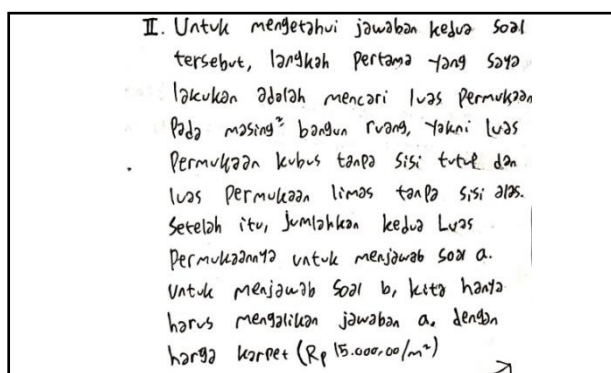 II. Untuk mengetahui jawaban kedua soal
tersebut, langkah pertama yang saya
lakukan adalah mencari luas permukaan
pada masing² bangun ruang, yakni luas
permukaan kubus tanpa sisi tutup dan
luas permukaan limas tanpa sisi alas.
Setelah itu, jumlahkan kedua Luas
permukaannya untuk menjawab soal a.
Untuk menjawab soal b, kita hanya
harus mengalikan jawaban a. dengan
harga karpet (Rp 15.000,00/m²)